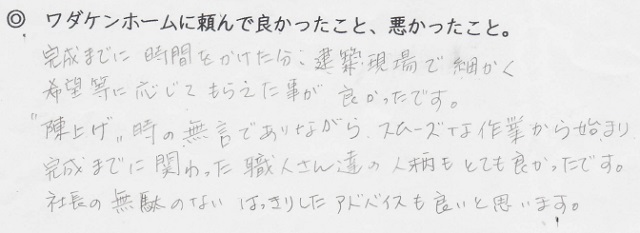 ◎ ワダケンホームに頼んで良かったこと、悪かったこと。
完成までに時間をかけた分、建築現場で細かく
希望等に応じてもらえた事が良かったです。
"陳上げ"時の無言でありながら、スムーズな作業から始まり
完成までに関わった職人さん達の人柄もとても良かったです。
社長の無駄のないはっきりしたアドバイスも良いと思います。